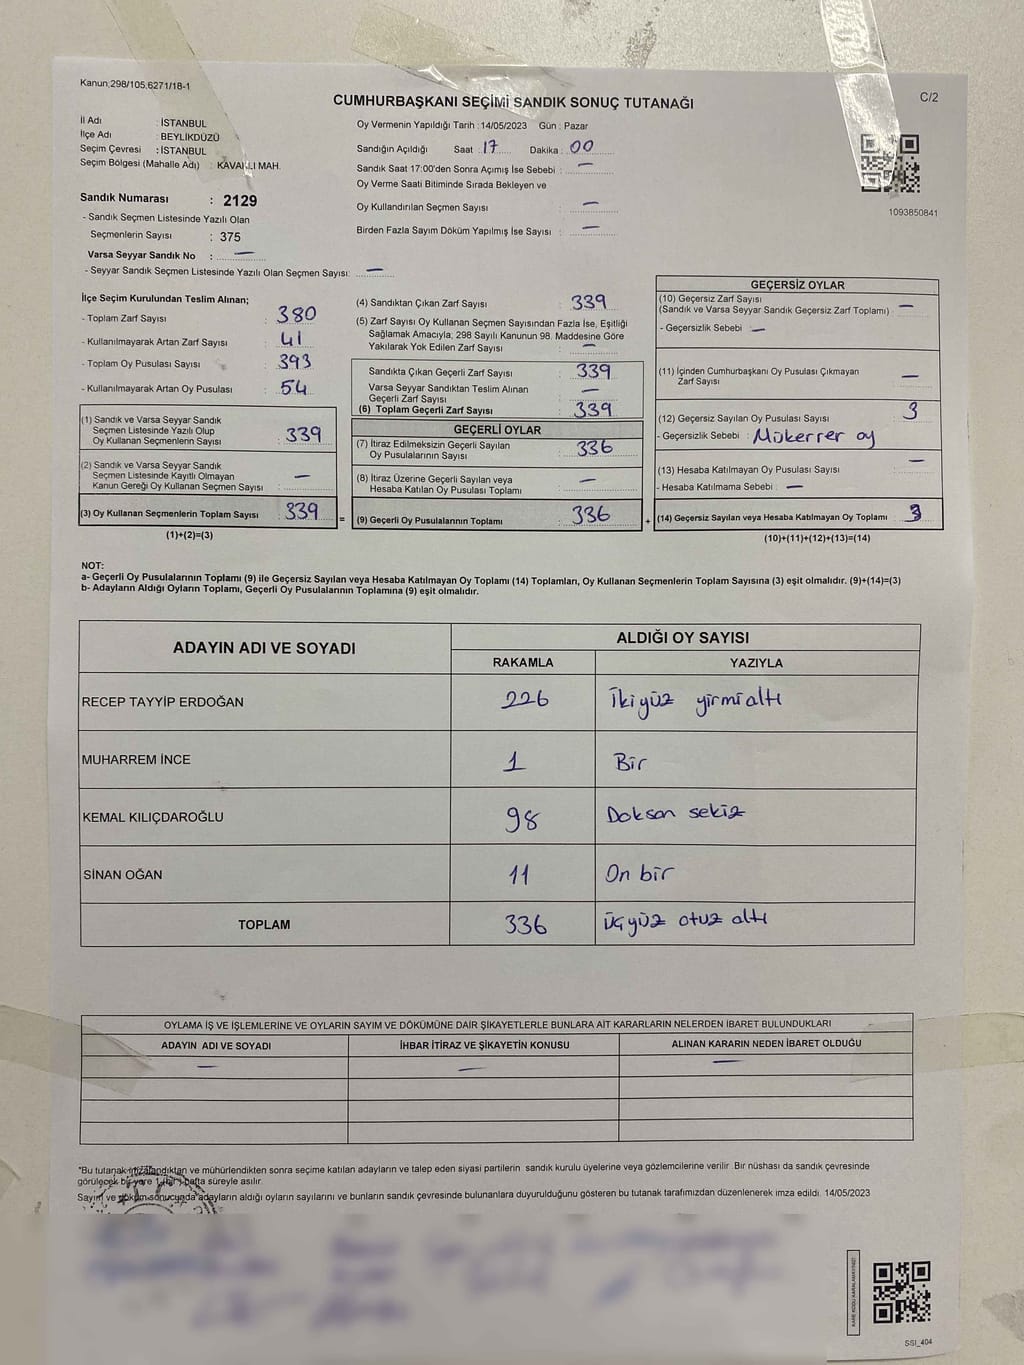 Kanun:298/105,6271/18-1
CUMHURBAŞKANI SEÇİMİ SANDIK SONUÇ TUTANAĞI
C/2
İl Adı : İSTANBUL
İlçe Adı : BEYLİKDÜZÜ
Seçim Çevresi : İSTANBUL
Seçim Bölgesi (Mahalle Adı) : KAVAKLI MAH.
Oy Vermenin Yapıldığı Tarih : 14/05/2023 Gün : Pazar
Sandığın Açıldığı Saat : 17 Dakika : 00
Sandık Saat 17:00'den Sonra Açımış İse Sebebi : —
Oy Verme Saati Bitiminde Sırada Bekleyen ve
Oy Kullandırılan Seçmen Sayısı : —
Birden Fazla Sayım Döküm Yapılmış İse Sayısı : —
1093850841
Sandık Numarası : 2129
- Sandık Seçmen Listesinde Yazılı Olan
Seçmenlerin Sayısı : 375
Varsa Seyyar Sandık No : —
- Seyyar Sandık Seçmen Listesinde Yazılı Olan Seçmen Sayısı: —
İlçe Seçim Kurulundan Teslim Alınan;
- Toplam Zarf Sayısı : 380
- Kullanılmayarak Artan Zarf Sayısı : 41
- Toplam Oy Pusulası Sayısı : 393
- Kullanılmayarak Artan Oy Pusulası : 54
(1) Sandık ve Varsa Seyyar Sandık
Seçmen Listesinde Yazılı Olup
Oy Kullanan Seçmenlerin Sayısı : 339
(2) Sandık ve Varsa Seyyar Sandık
Seçmen Listesinde Kayıtlı Olmayan
Kanun Gereği Oy Kullanan Seçmen Sayısı : —
(3) Oy Kullanan Seçmenlerin Toplam Sayısı : 339
(1)+(2)=(3)
(4) Sandıktan Çıkan Zarf Sayısı : 339
(5) Zarf Sayısı Oy Kullanan Seçmen Sayısından Fazla İse, Eşitliği
Sağlamak Amacıyla, 298 Sayılı Kanunun 98. Maddesine Göre
Yakılarak Yok Edilen Zarf Sayısı : —
Sandıkta Çıkan Geçerli Zarf Sayısı : 339
Varsa Seyyar Sandıktan Teslim Alınan
Geçerli Zarf Sayısı : —
(6) Toplam Geçerli Zarf Sayısı : 339
GEÇERLİ OYLAR
(7) İtiraz Edilmeksizin Geçerli Sayılan
Oy Pusulalarının Sayısı : 336
(8) İtiraz Üzerine Geçerli Sayılan veya
Hesaba Katılan Oy Pusulası Toplamı : —
= (9) Geçerli Oy Pusulalarının Toplamı : 336
GEÇERSİZ OYLAR
(10) Geçersiz Zarf Sayısı
(Sandık ve Varsa Seyyar Sandık Geçersiz Zarf Toplamı) : —
- Geçersizlik Sebebi : —
(11) İçinden Cumhurbaşkanı Oy Pusulası Çıkmayan
Zarf Sayısı —
(12) Geçersiz Sayılan Oy Pusulası Sayısı 3
- Geçersizlik Sebebi : Mükerrer oy
(13) Hesaba Katılmayan Oy Pusulası Sayısı —
- Hesaba Katılmama Sebebi : —
+ (14) Geçersiz Sayılan veya Hesaba Katılmayan Oy Toplamı 3
(10)+(11)+(12)+(13)=(14)
NOT:
a- Geçerli Oy Pusulalarının Toplamı (9) ile Geçersiz Sayılan veya Hesaba Katılmayan Oy Toplamı (14) Toplamları, Oy Kullanan Seçmenlerin Toplam Sayısına (3) eşit olmalıdır. (9)+(14)=(3)
b- Adayların Aldığı Oyların Toplamı, Geçerli Oy Pusulalarının Toplamına (9) eşit olmalıdır.
ADAYIN ADI VE SOYADI
ALDIĞI OY SAYISI
RAKAMLA YAZIYLA
RECEP TAYYİP ERDOĞAN 226 İkiyüz yirmialtı
MUHARREM İNCE 1 Bir
KEMAL KILIÇDAROĞLU 98 Doksan sekiz
SİNAN OĞAN 11 On bir
TOPLAM 336 üçyüz otuz altı
OYLAMA İŞ VE İŞLEMLERİNE VE OYLARIN SAYIM VE DÖKÜMÜNE DAİR ŞİKAYETLERLE BUNLARA AİT KARARLARIN NELERDEN İBARET BULUNDUKLARI
ADAYIN ADI VE SOYADI İHBAR İTİRAZ VE ŞİKAYETİN KONUSU ALINAN KARARIN NEDEN İBARET OLDUĞU
— — —
*Bu tutanak imzalandıktan ve mühürlendikten sonra seçime katılan adayların ve talep eden siyasi partilerin sandık kurulu üyelerine veya gözlemcilerine verilir. Bir nüshası da sandık çevresinde
görülecek bir yere 1 (bir) hafta süreyle asılır.
Sayım ve döküm sonucunda adayların aldığı oyların sayılarını ve bunların sandık çevresinde bulunanlara duyurulduğunu gösteren bu tutanak tarafımızdan düzenlenerek imza edildi. 14/05/2023
SSI_404